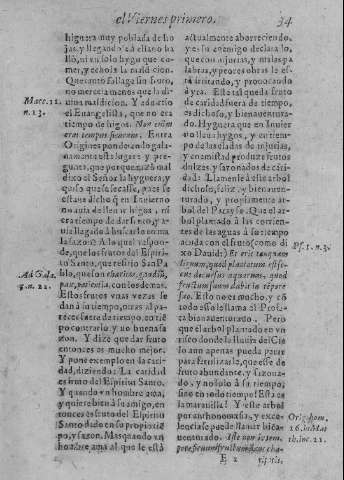 el Viernes primero. 34
higuera muy poblada de ho
jas, y llegando à ella no ha
llò, ni vn solo hygo que co-
mer, y echole la maldicion.
Marc. 11.
n. 13.
mas maldicion. Y aduertio
el Euangelista, que no era
tiempo de higos. Non enim
erat tempus ficorum. Entra
Origines ponderando gala-
namente este lugar: y pre-
gunta, que porque echò mal
dixo al Señor la hyguera, y
quiso que se secasse, pues se
estaua dicho q̃ en Inuierno
no auia de lleuar higos, ni e
ra tiempo de dar fruto, y a
uia llegado à buscarlo en ma
la sazon? A lo qual respon-
de, que los frutos del Espiri-
tu Santo, que refirio San Pa
Ad Gala.
5. n. 22.
blo, que son charitas, gaudiũ,
pax, patientia, con los demas.
Estos frutos vnas vezes se
dan à su tiempo, otras al pa-
recer fuera de tiempo, no tiẽ
po contrario, y no buena sa
zon. Y dize que dar fruto
entonces es mucho mejor.
Y pone exemplo en la cari-
dad, diziendo: La caridad
es fruto del Espiritu Santo.
Y quando vn hombre ama,
y quiere bien à su amigo, en
tonces es fruto del Espiritu
Santo dado en su propio tiẽ
po, y sazon. Mas quando vn
hombre ama al que le està
actualmente aborreciendo,
y es su enemigo declarado,
que con injurias, y malas pa
labras, y peores obras le es-
tà irritando, y prouocando
à yra. Este tal queda fruto
de caridad fuera de tiempo,
es dichoso, y bienauentura-
do. Hyguera que en Inuier
no lleua hygos, y en tiem-
po de las eladas de injurias,
y enemistad produze frutos
dulzes, y sazonados de cari-
dad. Llamenle à este arbol
dichoso, feliz, y bienauentu-
rado, y propiamente arbol
del Parayso. Que el ar-
bol plantado à las corrien-
tes de las aguas à su tiempo
acuda con el fruto (como di
Ps. 1. n. 3.
xo Dauid:) Et erit tanquam
lignum, quod plantatum est se-
cus decursus aquarum, quod
fructum suum dabit in tempore
suo. Esto no es mucho, y cõ
todo esso le llama el Profe-
ta bienauenturado. Pero
que el arbol plantado en vn
risco donde la lluuia del Cie
lo aun apenas puede parar
para fertilizarle, que esse de
fruto abundante, y sazona-
do, y no solo à su tiempo,
sino en todo tiempo! Essa es
la marauilla! Y à este arbol
por antonomasia, y exce-
lencia se puede llamar bien
Orig. hom.
16. in Mat
th. inc. 21.
auenturado.
E 2